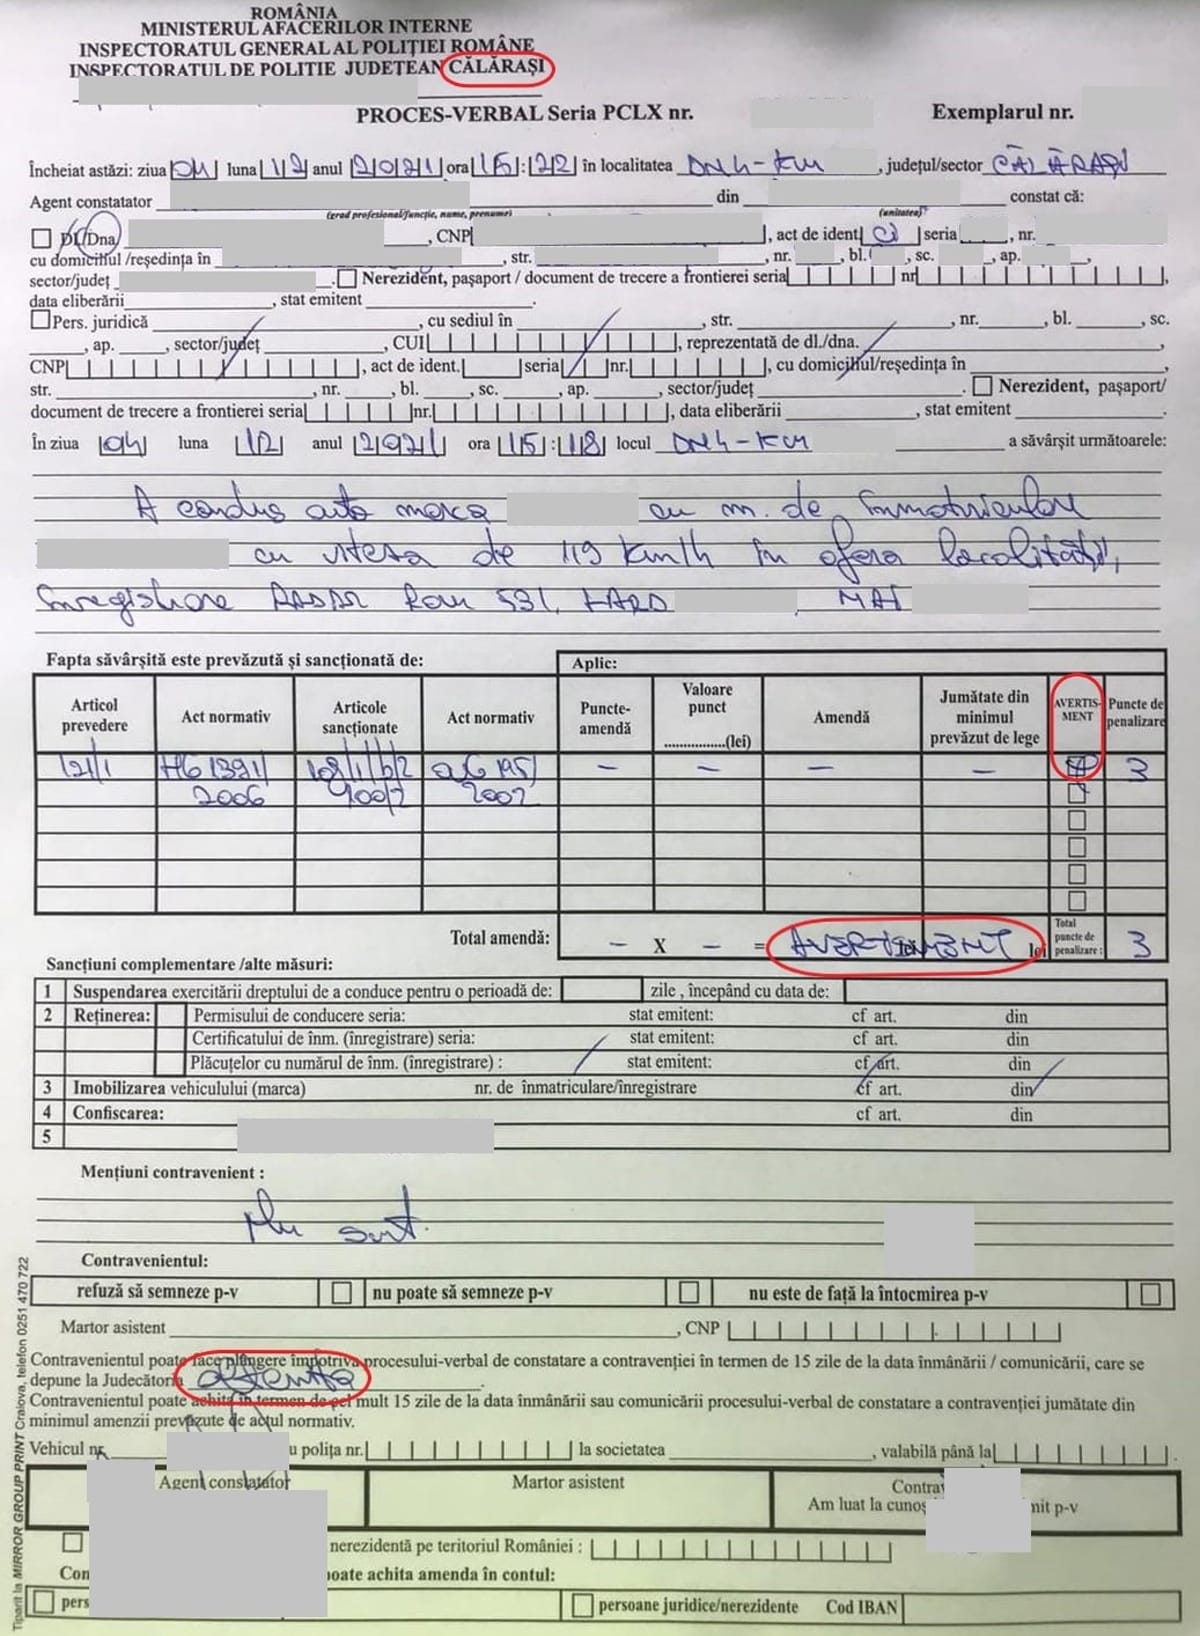 ROMÂNIA
MINISTERUL AFACERILOR INTERNE
INSPECTORATUL GENERAL AL POLIȚIEI ROMÂNE
INSPECTORATUL DE POLITIE JUDEȚEAN CĂLĂRAȘI
PROCES-VERBAL Seria PCLX nr. Exemplarul nr.
Încheiat astăzi: ziua 04 luna 12 anul 2021 ora 15:22 în localitatea DN4-KM , județul/sector CĂLĂRAȘI
Agent constatator din constat că:
(grad profesional/funcție, nume, prenume) (unitatea)
Dl/Dna , CNP , act de ident CI seria , nr.
cu domiciliul /reședința în , str. , nr. , bl. , sc. , ap. ,
sector/județ . Nerezident, pașaport / document de trecere a frontierei seria nr ,
data eliberării , stat emitent .
Pers. juridică , cu sediul în , str. , nr. , bl. , sc.
, ap. , sector/județ , CUI , reprezentată de dl./dna. ,
CNP , act de ident. seria nr. , cu domiciliul/reședința în ,
str. , nr. , bl. , sc. , ap. , sector/județ . Nerezident, pașaport/
document de trecere a frontierei seria nr. , data eliberării , stat emitent .
În ziua 04 luna 12 anul 2021 ora 15:18 locul DN4-KM a săvârșit următoarele:
A condus auto marca cu nr. de înmatriculare
cu viteza de 119 km/h în afara localității,
înregistrare RADAR Rom 531, HARD , MAI
Fapta săvârșită este prevăzută și sancționată de: Aplic:
Articol prevedere Act normativ Articole sancționate Act normativ Puncte-amendă Valoare punct ................(lei) Amendă Jumătate din minimul prevăzut de lege AVERTISMENT Puncte de penalizare
121/1 HG 1391/ 108/1/b/2 OUG 195/ – – – – 3
2006 100/2 2002
Total amendă: – X – = AVERTISMENT lei Total puncte de penalizare : 3
Sancțiuni complementare /alte măsuri:
1 Suspendarea exercitării dreptului de a conduce pentru o perioadă de: zile , începând cu data de:
2 Reținerea: Permisului de conducere seria: stat emitent: cf art. din
Certificatului de înm. (înregistrare) seria: stat emitent: cf art. din
Plăcuțelor cu numărul de înm. (înregistrare) : stat emitent: cf art. din
3 Imobilizarea vehiculului (marca) nr. de înmatriculare/înregistrare cf art. din
4 Confiscarea: cf art. din
5
Mențiuni contravenient :
Nu sunt.
Contravenientul:
refuză să semneze p-v nu poate să semneze p-v nu este de față la întocmirea p-v
Martor asistent , CNP
Contravenientul poate face plângere împotriva procesului-verbal de constatare a contravenției în termen de 15 zile de la data înmânării / comunicării, care se
depune la Judecătoria oltenița .
Contravenientul poate achita în termen de cel mult 15 zile de la data înmânării sau comunicării procesului-verbal de constatare a contravenției jumătate din
minimul amenzii prevăzute de actul normativ.
Vehicul nr u polița nr. la societatea , valabilă până la .
Agent constatator Martor asistent Contra
Am luat la cunoș nit p-v
nerezidentă pe teritoriul României :
Con poate achita amenda în contul:
pers persoane juridice/nerezidente Cod IBAN
Tiparit la MIRROR GROUP PRINT Craiova, telefon 0251 470 722